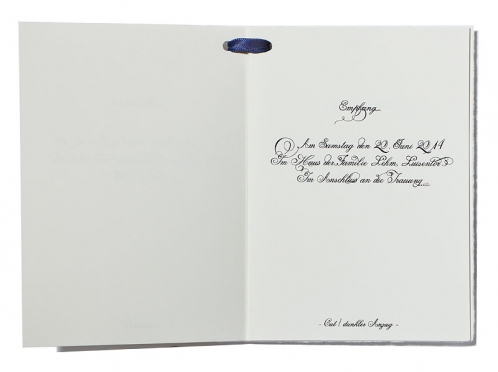 Empfang
Am Samstag den 20. Juni 2014
Im Haus der Familie Lehm, Luisentor 3
Im Anschluss an die Trauung
- Cut / dunkler Anzug -